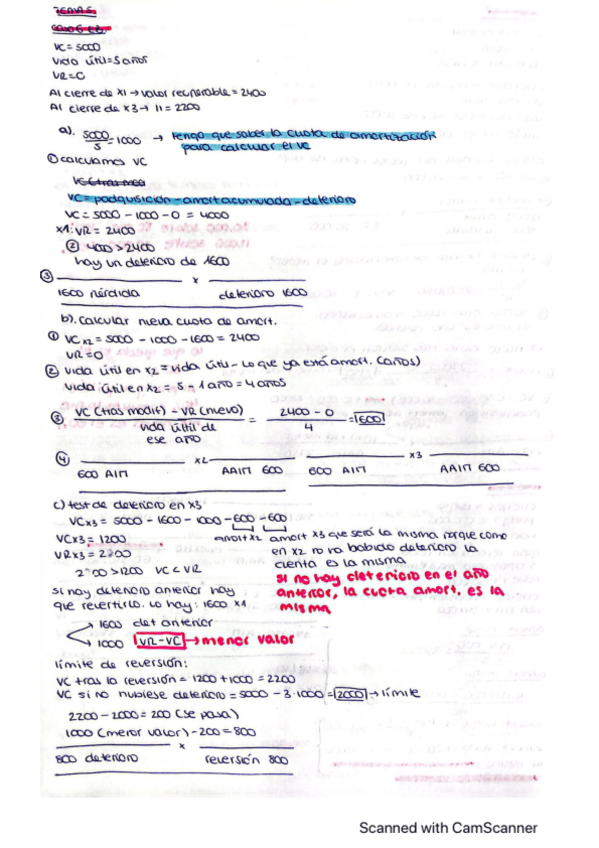 TEMA 5
VC = 5000
Vida útil = 5 años
VR = 0
Al cierre de X1 → valor recuperable = 2400
Al cierre de X3 → 11 = 2200
a). 5000/5 = 1000 → tengo que saber la cuota de amortización
para calcular el VC
① calculamos VC
VC = padquisición - amort acumulada - deterioro
VC = 5000 - 1000 - 0 = 4000
X1: VR = 2400
② 4000 > 2400
hay un deterioro de 1600
③ x
1600 pérdida deterioro 1600
b). calcular nueva cuota de amort.
① VCx2 = 5000 - 1000 - 1600 = 2400
VR = 0
② vida útil en X2 = vida útil - lo que ya está amort. (años)
Vida útil en X2 = 5 - 1 año = 4 años
③ VC (tras modif) - VR (nuevo) / vida útil de ese año = 2400 - 0 / 4 = 600
④ x2 x3
600 AIM AAIM 600 600 AIM AAIM 600
c) test de deterioro en X3
VCx3 = 5000 - 1600 - 1000 - 600 - 600
VCx3 = 1200 amort X2 amort X3 que será la misma porque como
VRx3 = 2200 en X2 no va habido deterioro la
2200 > 1200 VC < VR cuenta es la misma
si no hay deterioro en el año
anterior, la cuota amort. es la
misma
si hay deterioro anterior hay
que revertirlo. Lo hay: 1600 X1
→ 1600 det anterior
→ 1000 VR - VC → menor valor
límite de reversión:
VC tras la reversión = 1200 + 1000 = 2200
VC si no hubiese deterioro = 5000 - 3·1000 = 2000 → límite
2200 - 2000 = 200 (se pasa)
1000 (menor valor) - 200 = 800
x
800 deterioro reversión 800
Scanned with CamScanner